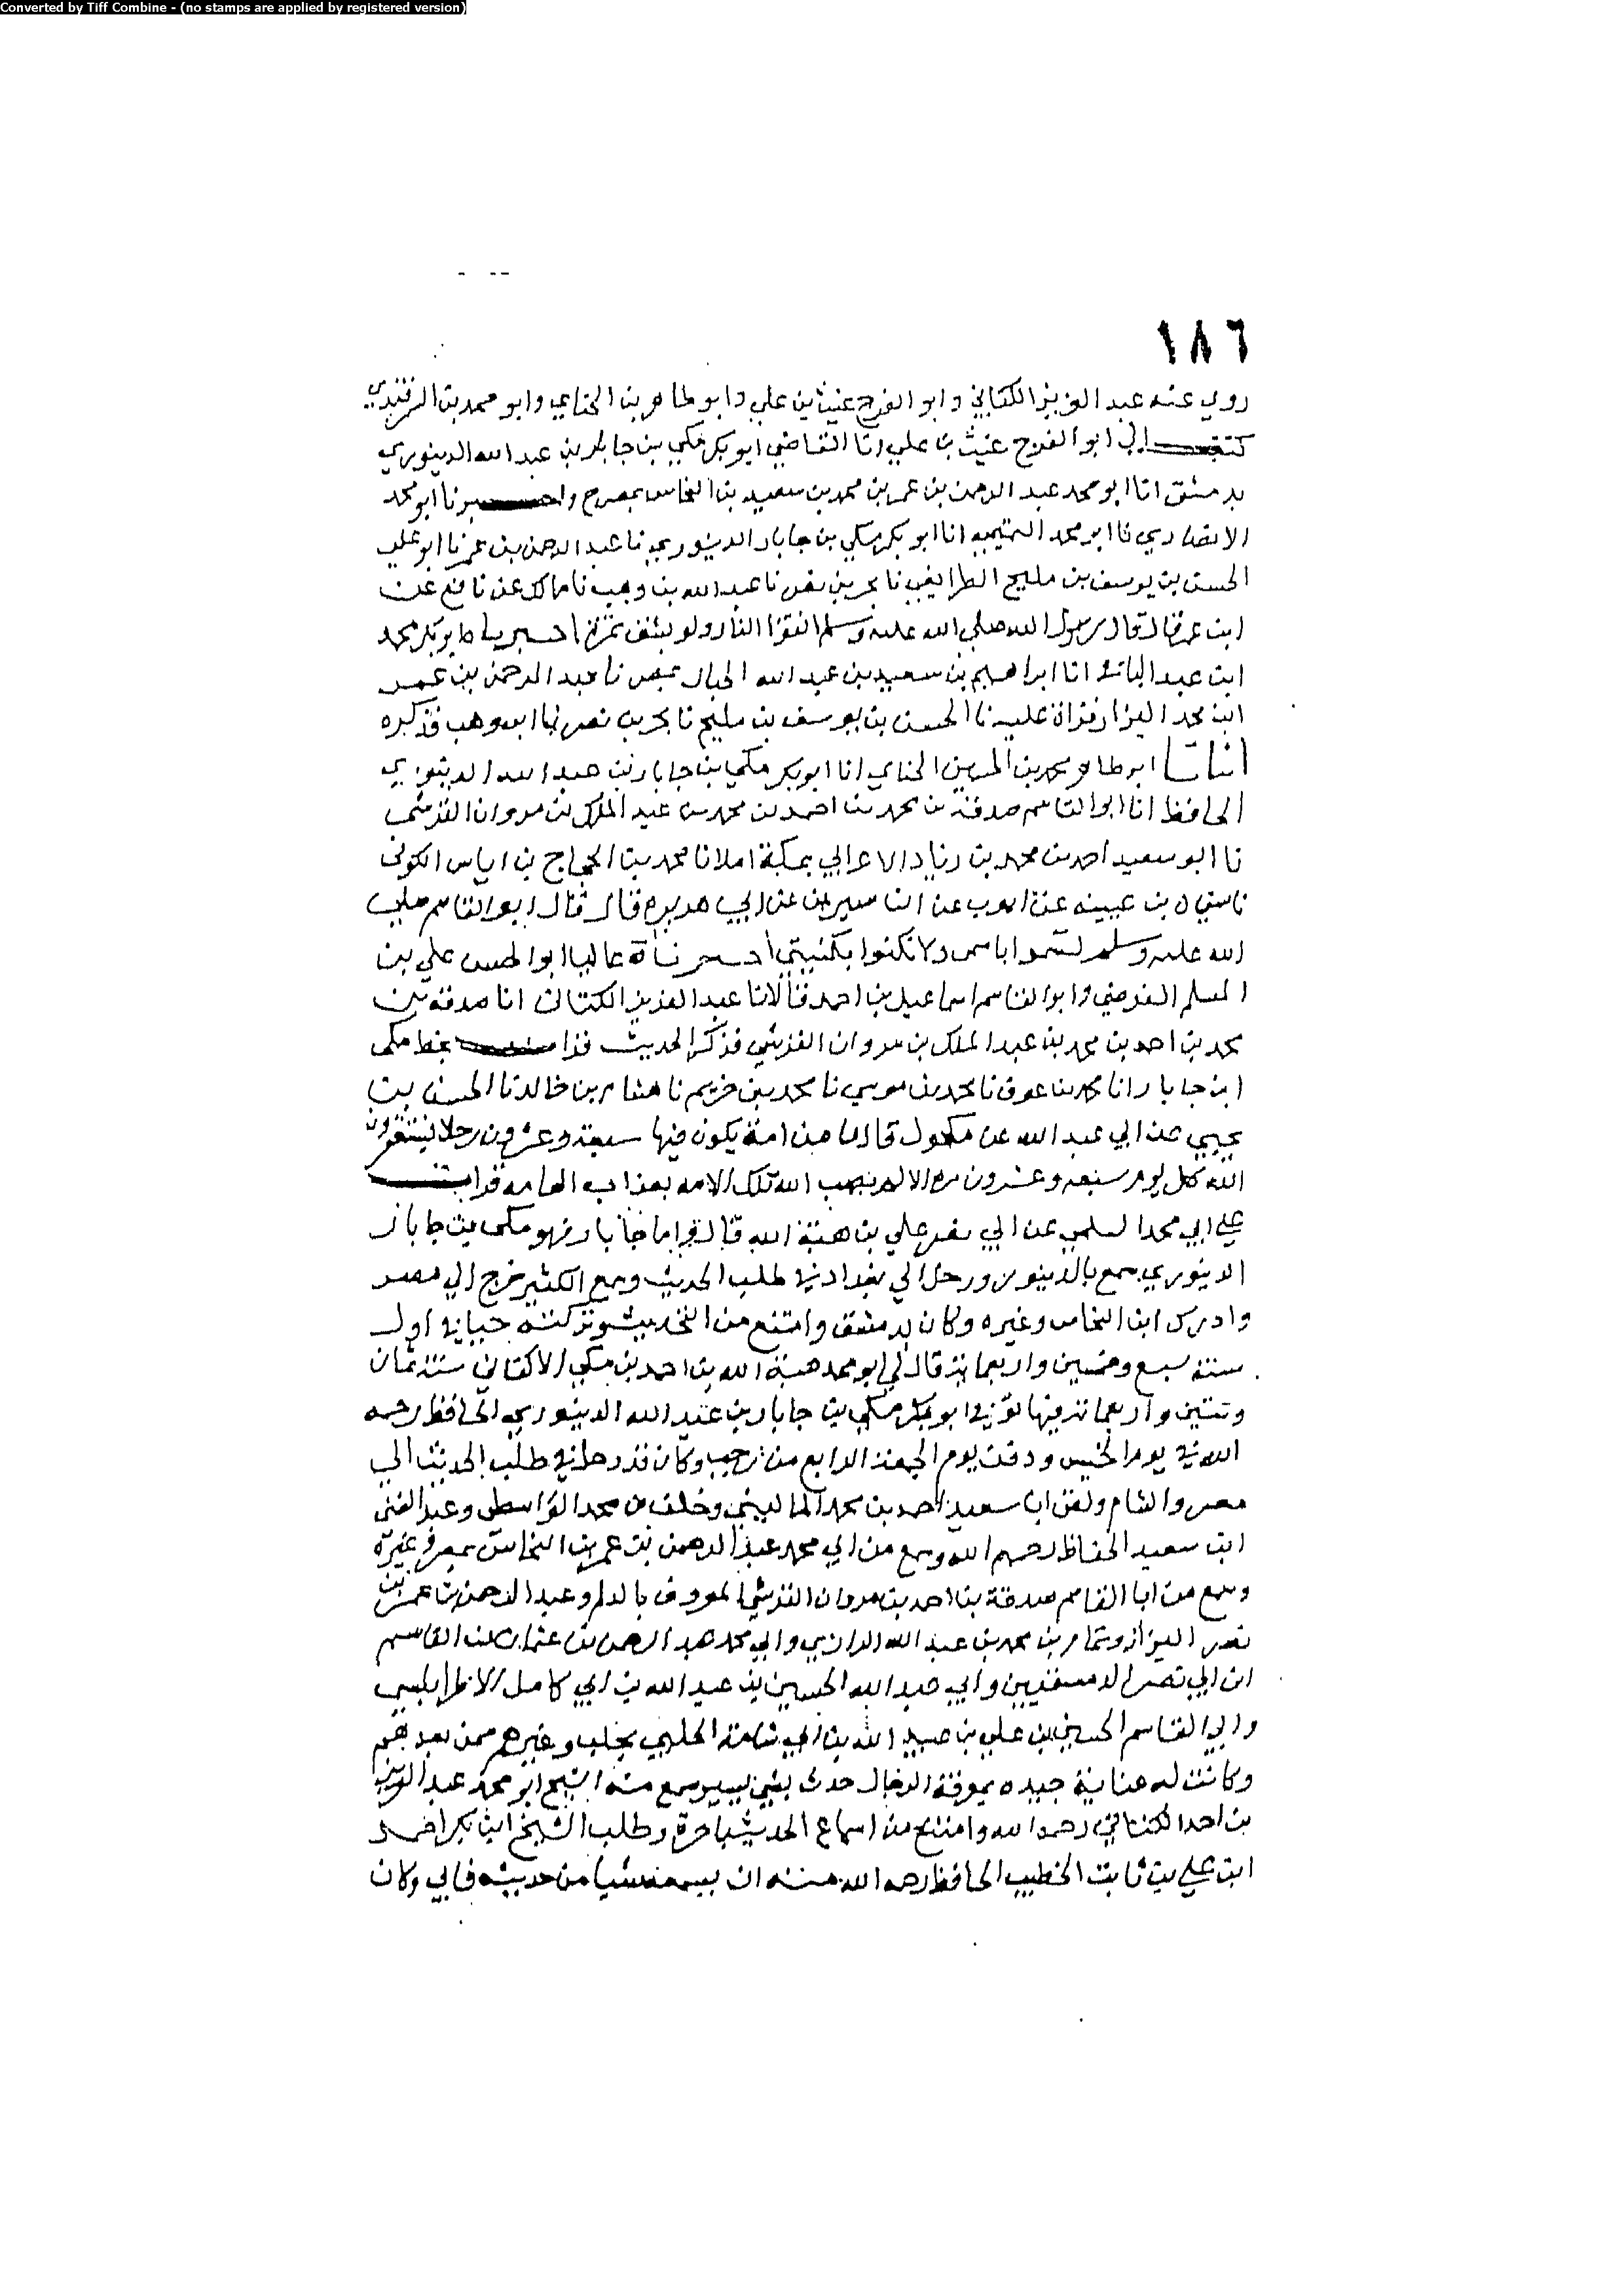 Converted by Tiff Combine - (no stamps are applied by registered version)
١٨٦
روي عنه عبد العزيز الكتاني وابو الفرج غيث بن علي وابو طاهر بن الحناي وابو محمد بن السمرقندي
كتب الي ابو الفرج غيث بن علي انا القاضي ابو بكر مكي بن جابار بن عبد الله الدينوري
بدمشق انا ابو محمد عبد الرحمن بن عمر بن محمد بن سعيد بن النحاس بمصر ح واخبرنا ابو محمد
الانصاري نا ابو محمد التميمي انا ابو بكر مكي بن جابار الدينوري نا عبد الرحمن بن عمر نا ابو علي
الحسن بن يوسف بن مليح الطرايفي نا بحر بن نصر نا عبد الله بن وهب نا مالك عن نافع عن
ابن عمر قال قال رسول الله صلي الله عليه وسلم اتقوا النار ولو بشق تمرة اخبرنا ابو بكر محمد
ابن عبد الباقي انا ابراهيم بن سعيد بن عبد الله الحبال بمصر نا عبد الرحمن بن عمر
ابن محمد البزار قراة عليه نا الحسن بن يوسف بن مليح نا بحر بن نصر نا ابن وهب فذكره
انبانا ابو طاهر محمد بن الحسين الحناي انا ابو بكر مكي بن جابار بن عبد الله الدينوري
الحافظ انا ابو القاسم صدقة بن محمد بن احمد بن محمد بن عبد الملك بن مروان القرشي
نا ابو سعيد احمد بن محمد بن زياد الاعرابي بمكة املا نا محمد بن الحجاج بن اياس الكوفي
نا سفيان بن عيينه عن ايوب عن ابن سيرين عن ابي هريره قال قال ابو القاسم صلي
الله عليه وسلم تسموا باسمي ولا تكنوا بكنيتي اخبرناه عاليا ابو الحسن علي بن
المسلم الفرضي وابو القاسم اسماعيل بن احمد قالا نا عبد العزيز الكتاني انا صدقه بن
محمد بن احمد بن محمد بن عبد الملك بن مروان القرشي فذكر الحديث قرات بخط مكي
ابن جابار انا محمد بن عوف نا محمد بن موسي نا محمد بن خريم نا هشام بن خالد نا الحسن بن
يحيي عن ابي عبد الله عن مكحول قال ما من امة يكون فيها سبعة وعشرون رجلا يستغفرون
الله كل يوم سبعه وعشرون مره الا لم يعذب الله تلك الامه بعذاب العامه قرات
علي ابي محمد السلمي عن ابي نصر علي بن هبة الله قال واما جابار فهو مكي بن جابار
الدينوري سمع بالدينور ورحل الي بغداد في طلب الحديث وسمع الكثير خرج الي مصر
وادرك ابن النحاس وغيره وكان بدمشق وامتنع من التحديث وتركته حيا في اول
سنة سبع وخمسين واربعماية قال لي ابو محمد هبة الله بن احمد بن مكي الاكفاني سنة ثمان
وستين واربعماية فيها توفي ابو بكر مكي بن جابار بن عبد الله الدينوري الحافظ رحمه
الله في يوم الخميس ودفن يوم الجمعة الرابع من رجب وكان قد رحل في طلب الحديث الي
مصر والشام ولقي ابا سعيد احمد بن محمد الماليني وخلف بن محمد الواسطي وعبد الغني
ابن سعيد الحفاظ رحمهم الله وسمع من ابي محمد عبد الرحمن بن عمر بن النحاس بمصر وغيره
وسمع من ابا القاسم صدقة بن احمد بن مروان القرشي المعروف بالدلم وعبد الرحمن بن عمر بن
نصر البزاز وتمام بن محمد بن عبد الله الرازي وابي محمد عبد الرحمن بن عثمان بن القاسم
ابن ابي نصر الدمشقيين وابي عبد الله الحسين بن عبد الله بن ابي كامل الاطرابلسي
وابي القاسم الحسين بن علي بن عبيد الله بن ابي شامة الحلبي بحلب وغيرهم ممن بعدهم
وكانت له عناية جيده بمعرفة الرجال حدث بشي يسير سمع منه الشيخ ابو محمد عبد العزيز
بن احمد الكتاني رحمه الله وامتنع من اسماع الحديث باخرة وطلب الشيخ ابي بكر احمد
ابن علي بن ثابت الخطيب الحافظ رحمه الله منه ان يسمعه شيا من حديثه فابي وكان